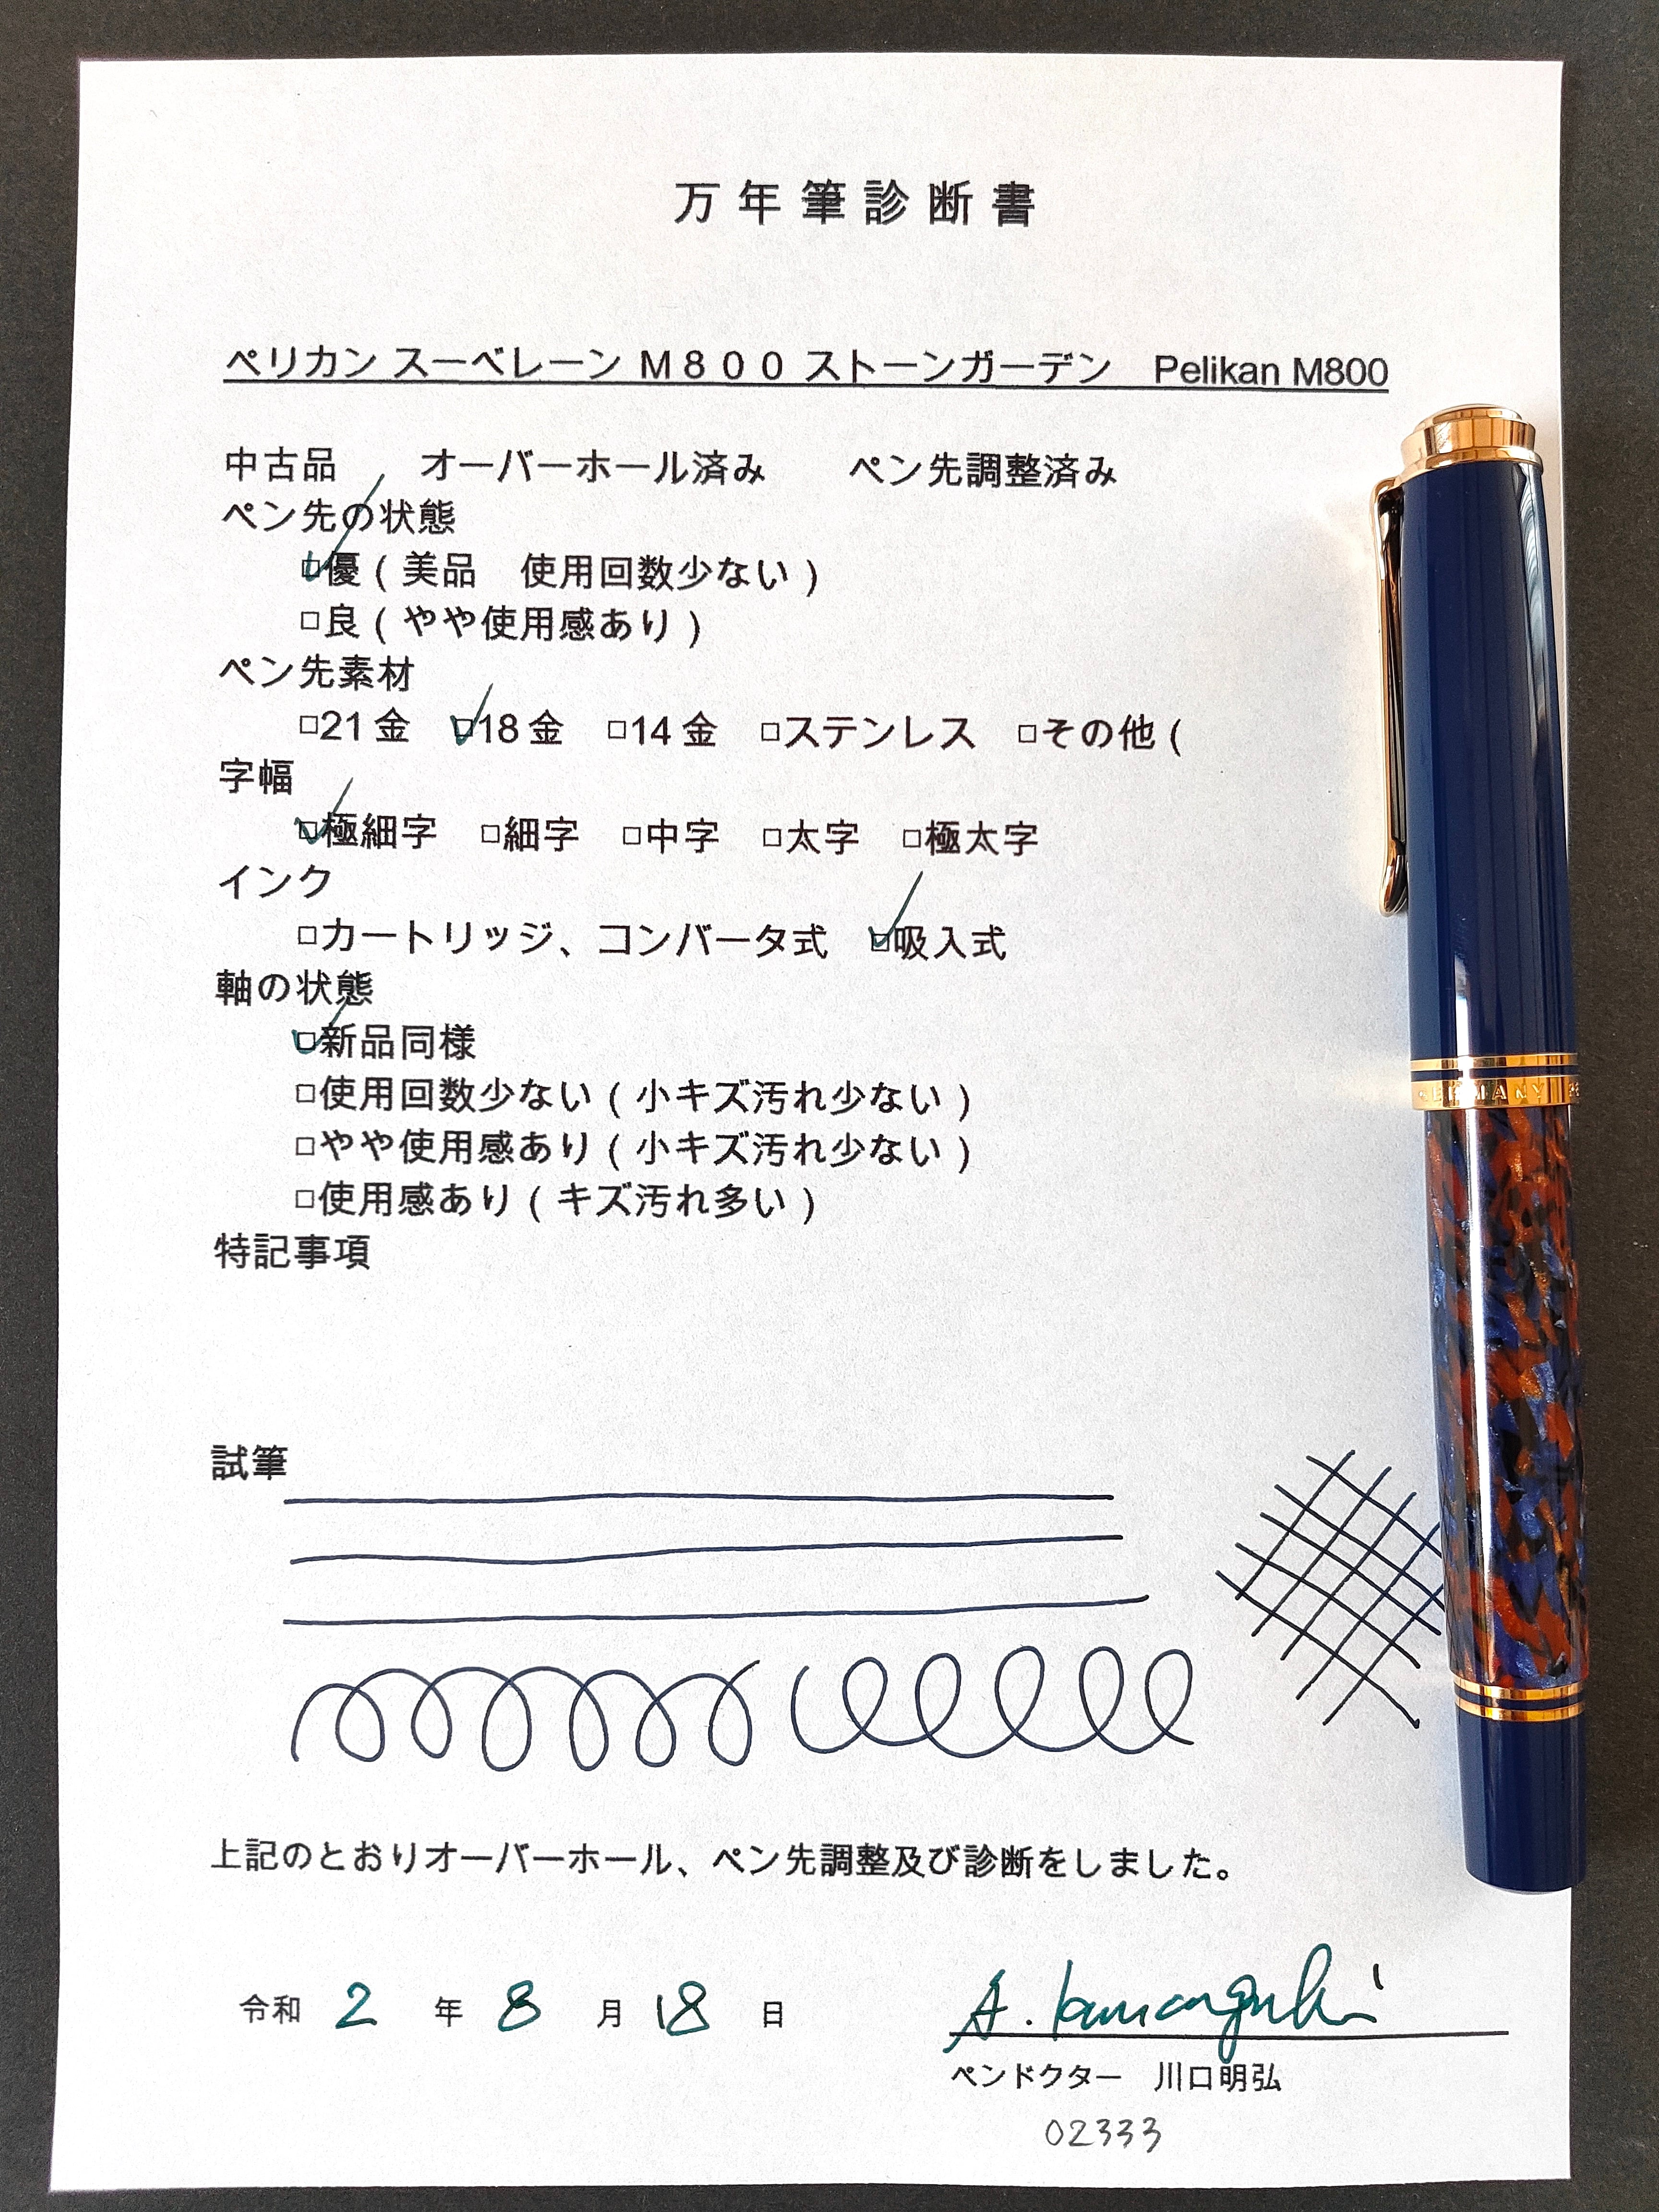 万年筆診断書
ペリカン スーベレーン M800 ストーンガーデン　Pelikan M800
中古品　オーバーホール済み　ペン先調整済み
ペン先の状態
☑優(美品　使用回数少ない)
□良(やや使用感あり)
ペン先素材
□21金　☑18金　□14金　□ステンレス　□その他(
字幅
☑極細字　□細字　□中字　□太字　□極太字
インク
□カートリッジ、コンバータ式　☑吸入式
軸の状態
☑新品同様
□使用回数少ない(小キズ汚れ少ない)
□やや使用感あり(小キズ汚れ少ない)
□使用感あり(キズ汚れ多い)
特記事項
試筆
上記のとおりオーバーホール、ペン先調整及び診断をしました。
令和 2 年 8 月 18 日
A. Kawaguchi
ペンドクター　川口明弘
02333